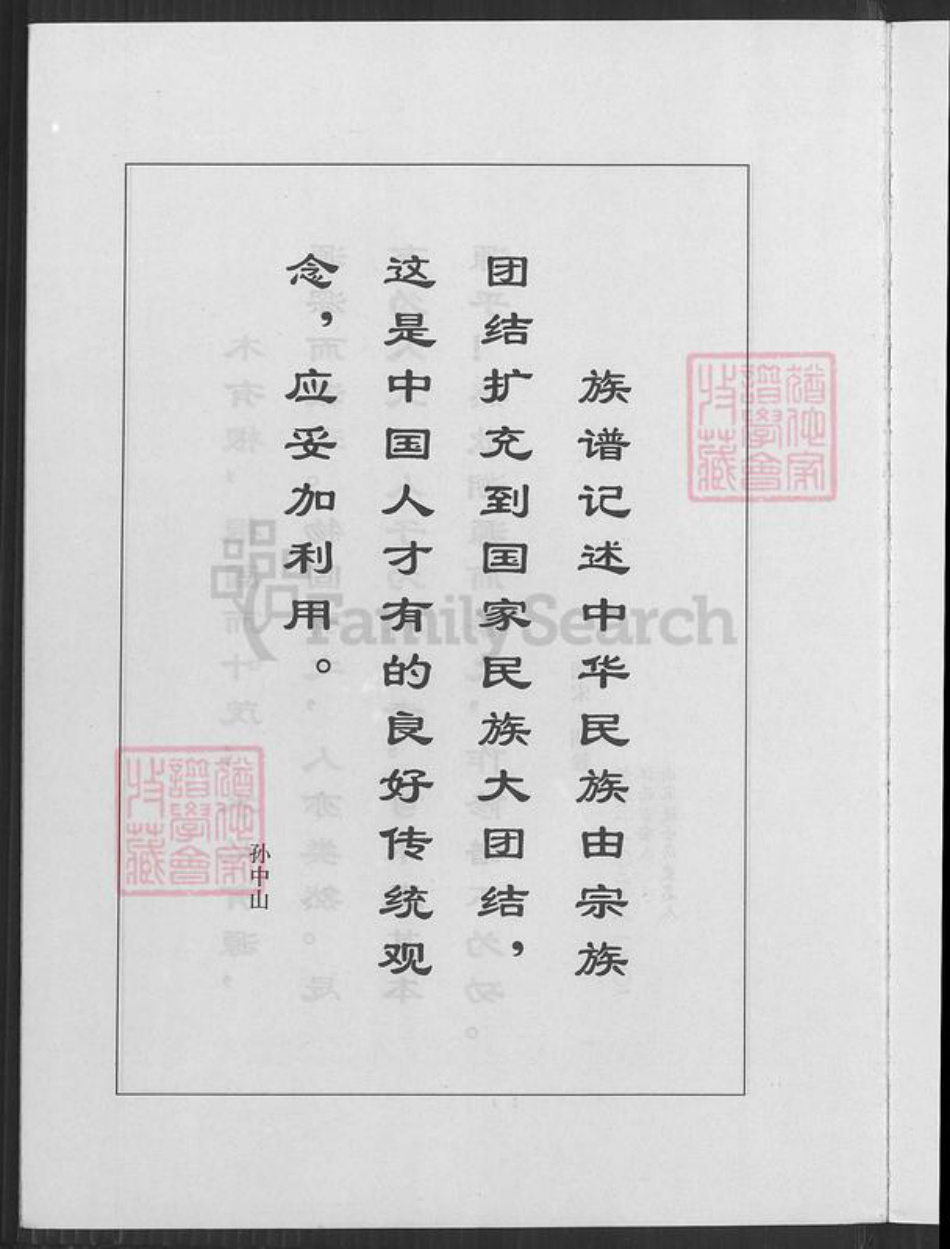 族谱记述中华民族由宗族
团结扩充到国家民族大团结，
这是中国人才有的良好传统观
念，应妥加利用。
孙中山
FamilySearch
猶他家
譜學會
收藏
猶他家
譜學會
收藏